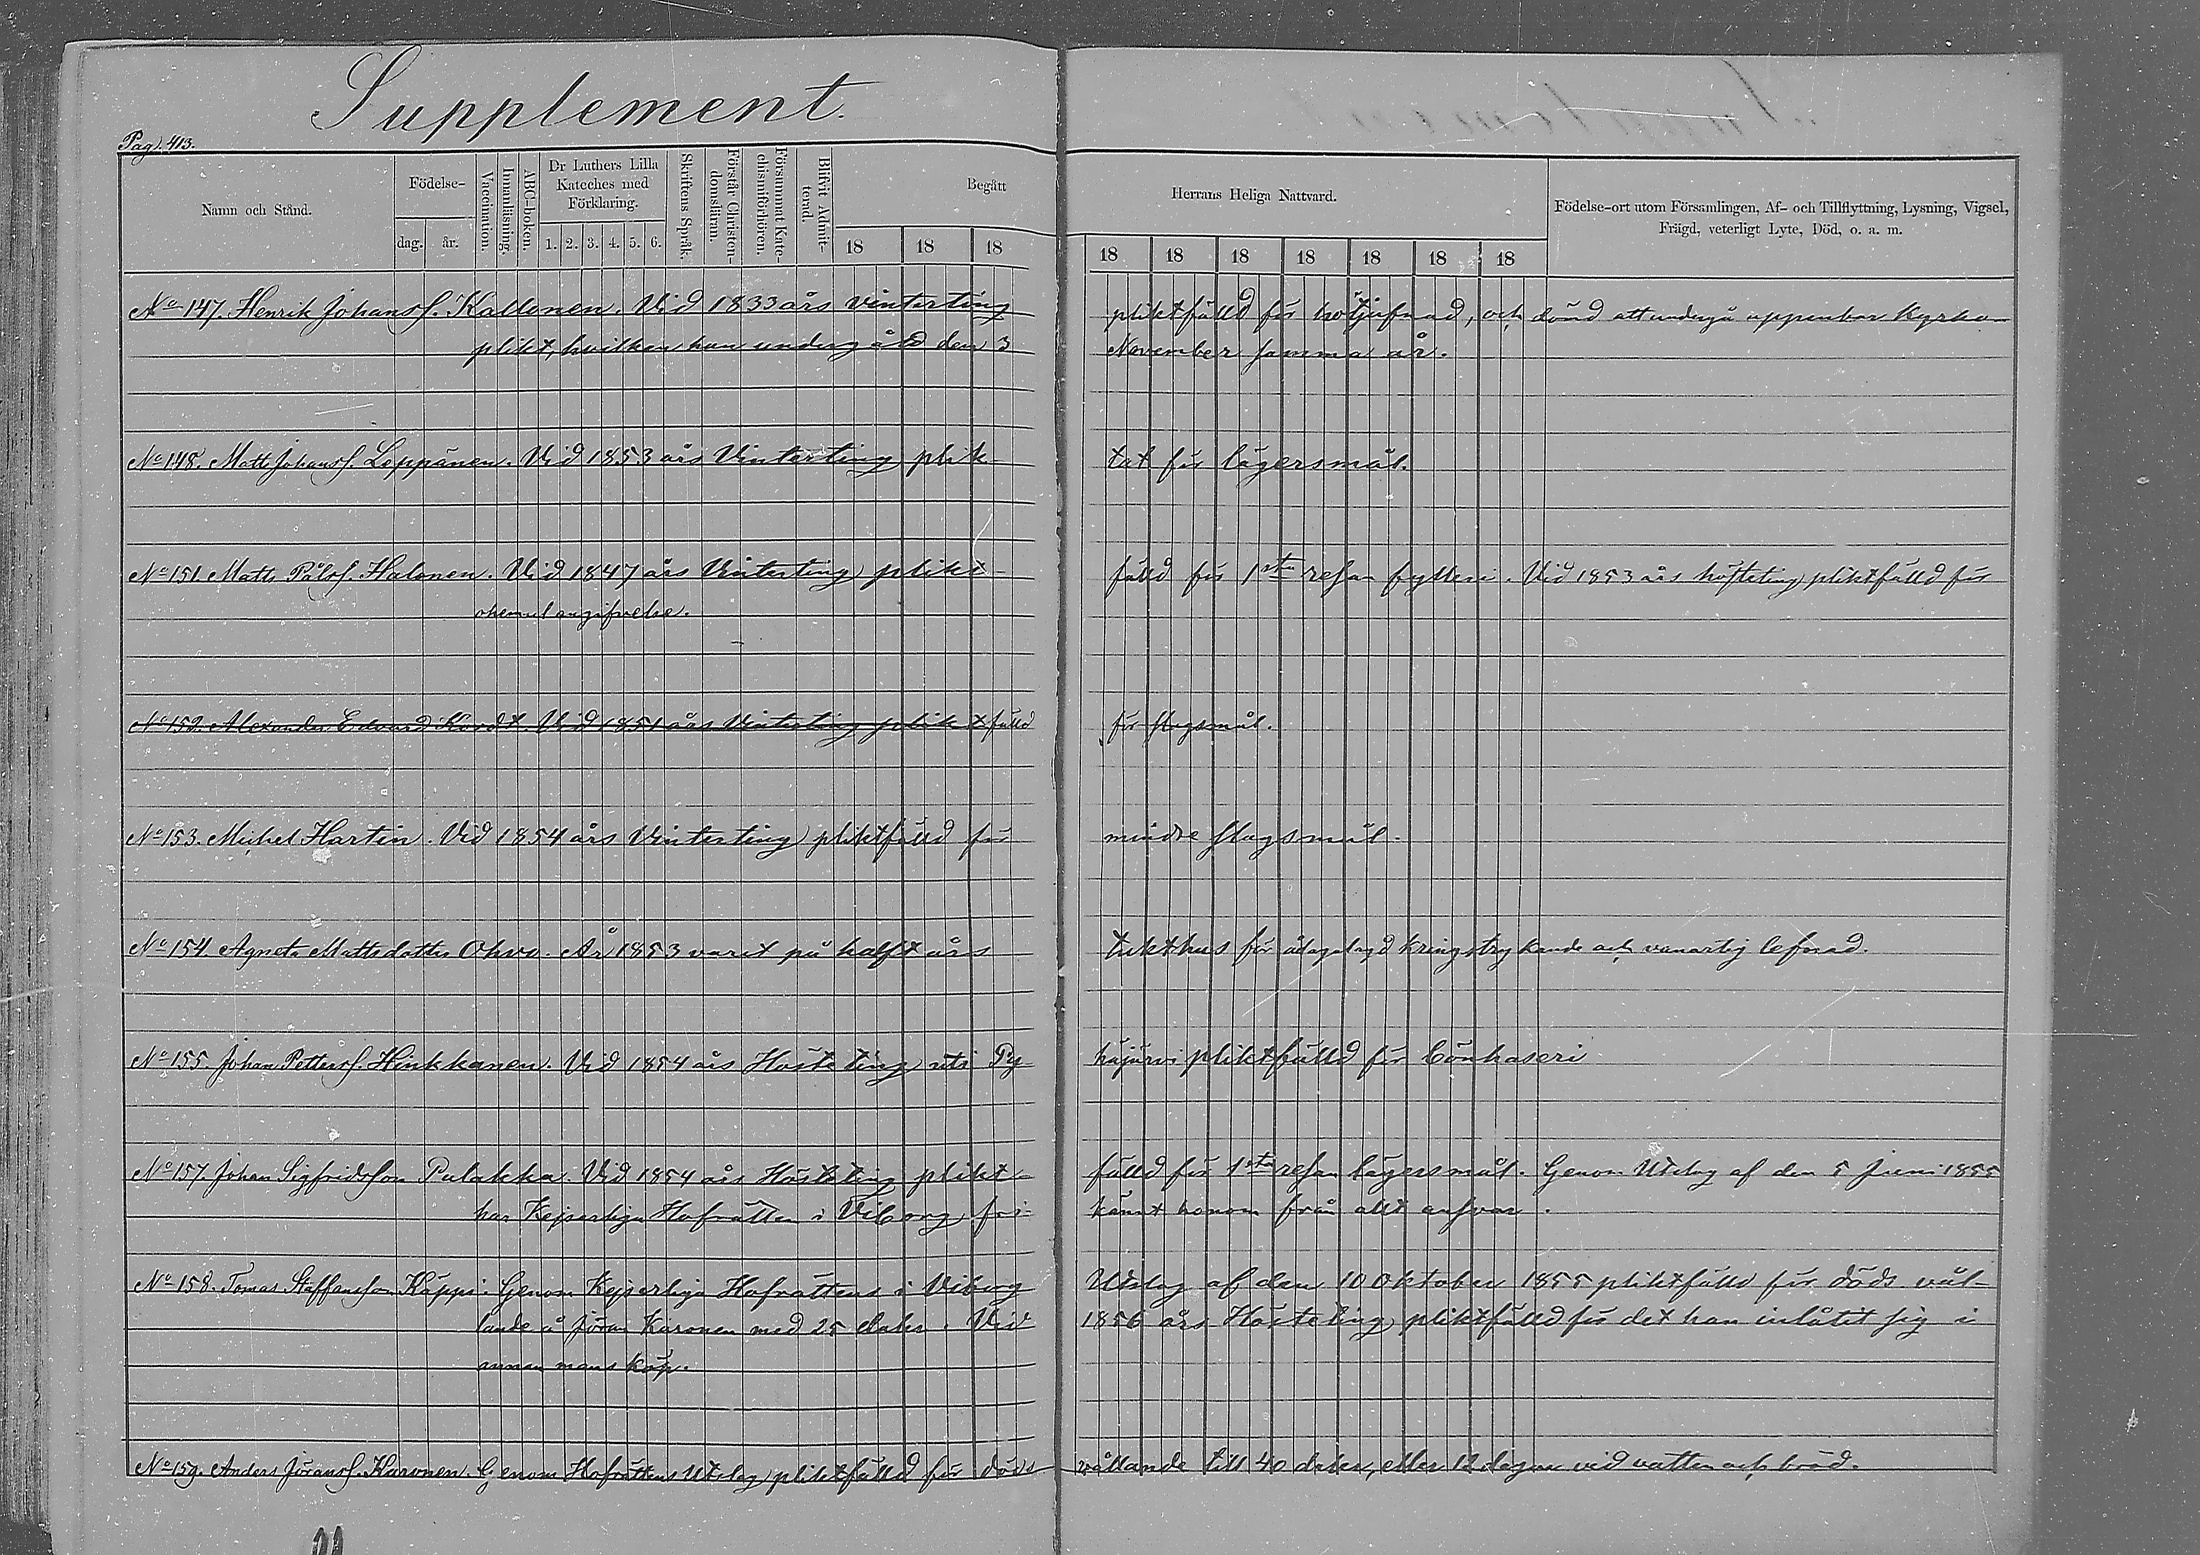 Supplement.
Pag. 413.
Namn och Stånd.
Födelse-
dag.
år.
Vaccination.
Innanläsning.
ABC-boken.
Dr Luthers Lilla
Kateches med
Förklaring.
1. 2. 3. 4. 5. 6.
Skriftens Språk.
Förstår Christen-
domslären.
Försummat Kate-
chismiförhören.
Blifvit Admit-
terad.
Begått
18 18 18
Herrans Heliga Nattvard.
18 18 18 18 18 18 18
Födelse-ort utom Församlingen, Af- och Tillflyttning, Lysning, Vigsel,
Frägd, veterligt Lyte, Död, o. a. m.
No 147. Henrik Johans. Kallonen. Vid 1833 års vinterting pliktfälld för hötjufnad, och dömd att undergå uppenbar kyrko-
plikt, hvilken han undergått den 3 November samma år.
No 148. Matts Johans. Leppänen. Vid 1853 års Vinterting plik tat för lägersmål.
No 151. Matts Pålss. Halonen. Vid 1847 års Vinterting plikt- fälld för 1sta resan fylleri. Vid 1853 års hösteting pliktfälld för
angifvelse.
No 152. Alexander Edvard Kordt. Vid 1851 års Vinterting plikt fälld för slagsmål.
No 153. Michel Hartin. Vid 1854 års Vinterting pliktfälld för mindre slagsmål.
No 154. Agneta Mattsdotter Ohvo. År 1853 varit på halft års tukthus för ådagalagd kringstrykande och vanartig lefnad.
No 155. Johan Petterss. Hinkkanen. Vid 1854 års Hösteting uti Py- häjärvi pliktfälld för lönkrögeri
No 157. Johan Sigfridsson Pulakka. Vid 1854 års Hösteting plikt- fälld för 1sta resan lägersmål. Genom Utslag af den 5 Juni 1855
har Kejserliga Hofrätten i Viborg fri- kännt honom från allt ansvar.
No 158. Tomas Staffansson Käppi. Genom Kejserliga Hofrättens i Viborg Utslag af den 10 Oktober 1855 pliktfälld för döds vål-
lande å Jöran Karonen med 25 daler. Vid 1856 års Hösteting pliktfälld för det han inlåtit sig i
annan mans köp.
No 159. Anders Jöranss. Karonen. Genom Hofrättens Utslag pliktfälld för döds vållande till 40 daler, eller 12 dagar vid vatten och bröd.